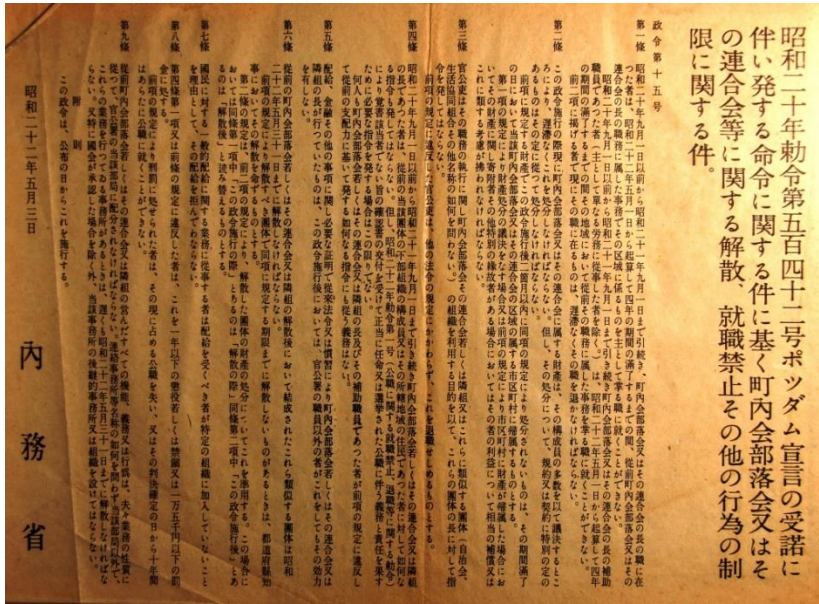 昭和二十年勅令第五百四十二号ポツダム宣言の受諾に
伴い発する命令に関する件に基く町内会部落会又はそ
の連合会等に関する解散、就職禁止その他の行為の制
限に関する件。
政令第十五号
第一條
昭和二十年九月一日以前から昭和二十一年九月一日まで引き続き、町内会部落会又はその連合会の長の職に在
つた者は、昭和二十二年五月一日から起算して四年の期間の満了するまでの間、従前町内会部落会又はその
連合会の長の職務に属した事務でその区域に係るものを主として掌る職に就くことができない。
昭和二十年九月一日以前から昭和二十一年九月一日まで引き続き町内会部落会又はその連合会の長の補助
職員であつた者(主として単なる労務に従事した者を除く。)は、昭和二十二年五月一日から起算して四年
の期間の満了するまでの間その地域において従前その職務に属した事務を掌る職に就くことができない。
前二項に掲げる者で現にその職に在るものは、遅滞なくその職を退かなければならない。
第二條
この政令施行の際現に町内会部落会又はその連合会に属する財産は、その構成員の多数を以て議決するとこ
ろにより、遅滞なくこれを処分しなければならない。但し、その処分について、規約又は契約に特別の定の
あるものはその定に従つて処分しなければならない。
前項に規定する財産でこの政令施行後二箇月以内に同項の規定により処分されないものは、その期間満了
の日において当該町内会部落会又はその連合会の区域の属する市区町村に帰属するものとする。
第一項の規定により財産処分の議決をなす場合又は前項の規定により市区町村に財産が帰属した場合にお
いてその財産に関し寄附者その他特別の縁故者がある場合においてはその者の利益について相当の補償又は
これに類する考慮が拂われなければならない。
第三條
官公吏はその職務の執行に関し町内会部落会その連合会若しくは隣組又はこれらに類似する団体(自治会、
生活協同組合その他名称の如何を問わない。)の組織を利用する目的を以て、これらの団体の長に対して指
令を発してはならない。
前項の規定に違反した官公吏は、他の法令の規定にかかわらず、これを退職せしめるものとする。
第四條
昭和二十年九月一日以前から昭和二十一年九月一日まで引き続き町内会部落会若しくはその連合会又は隣組
の長であつた者は、従前の当該団体の下部組織の構成員又はその所轄地域の住民であつた者に対して如何な
る指令も発してはならない。但し、昭和二十二年勅令第一号(公職に関する就職禁止、退職等に関する勅令)
により覚書該当者でない旨の確認書の交付を受けて正当に任命又は選挙された公職に伴う義務と責任を果す
ために必要な指令を発する場合はこの限りでない。
何人も町内会部落会若しくはその連合会又は隣組の長及びその補助職員であつた者が前項の規定に違反し
て従前の支配力に基いて発する如何なる指令にも従う義務はない。
第五條
配給、金融その他の事項に関し必要な証明で従來法令又は慣習により町内会部落会若しくはその連合会又は
隣組の長が行つていたものは、この政令施行後においては、官公署の職員以外の者がこれをしてもその効力
を有しない。
第六條
従前の町内会部落会若しくはその連合会又は隣組の解散後において結成されたこれら類似する団体は昭和
二十二年五月三十一日までに解散しなければならない。
前項の規定により解散すべき団体で同項に規定する期限までに解散しないものがあるときは、都道府県知
事において解散を命ずるものとする。
第二條の規定は、前二項の規定により、解散した団体の財産の処分についてこれを準用する。この場合に
おいては同條第一項中「この政令施行の際」とあるのは「解散の際」同條第二項中「この政令施行後」とあ
るのは「解散後」と読み替えるものとする。
第七條
國民に対する一般的配給に関する業務に従事する者は配給を受くべき者が特定の組織に加入していないこと
を理由として、その配給を拒んではならない。
第八條
第四條第一項又は前條の規定に違反した者は、これを一年以下の懲役若しくは禁錮又は一万五千円以下の罰
金に処する。
前項の規定により刑罰に処せられた者は、その現に占める公職を失い、又はその判決確定の日から十年間
はあらたに公職に就くことができない。
第九條
従前町内会部落会若しくはその連合会又は隣組の営んだすべての機能、義務又は行為は、夫々業務の性質に
従つて官公署の当該部局に配分されなければならない。連絡事務所等名称の如何を問わず当該部局以外で、
これらの業務を行つてゐる事務所があるときは、遅くも昭和二十二年五月三十一日までに解散しなければな
らない。又特に國会が承認した場合を除く外、当該事務所の後継的事務所又は組織を設けてはならない。
附則
この政令は、公布の日からこれを施行する。
昭和二十二年五月三日
内務省